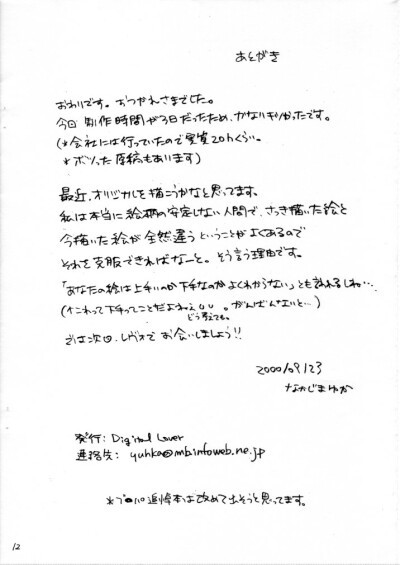 あとがき
おわりです。おつかれさまでした。
今回 制作時間が3日だったため、かなりギリギリだったです。
(*会社には行っていたので実質20hくらい。
*ボツった原稿もあります)
最近、オリジナルを描こうかなと思ってます。
私は本当に絵柄の安定しない人間で、さっき描いた絵と
今描いた絵が全然違うということがよくあるので
それを克服できればなーと。そう言う理由です。
「あなたの絵は上手いのか下手なのかよくわからない」とも言われるしね…
(↑これって下手ってことだよねぇUU。がんばんないと…)
どう考えても。
では次回、レヴォでお会いしましょう!!
2000/09/23
なかじまゆか
発行: Digital Lover
連絡先: yuhka@mb.infoweb.ne.jp
追悼本は改めて出そうと思ってます。
12